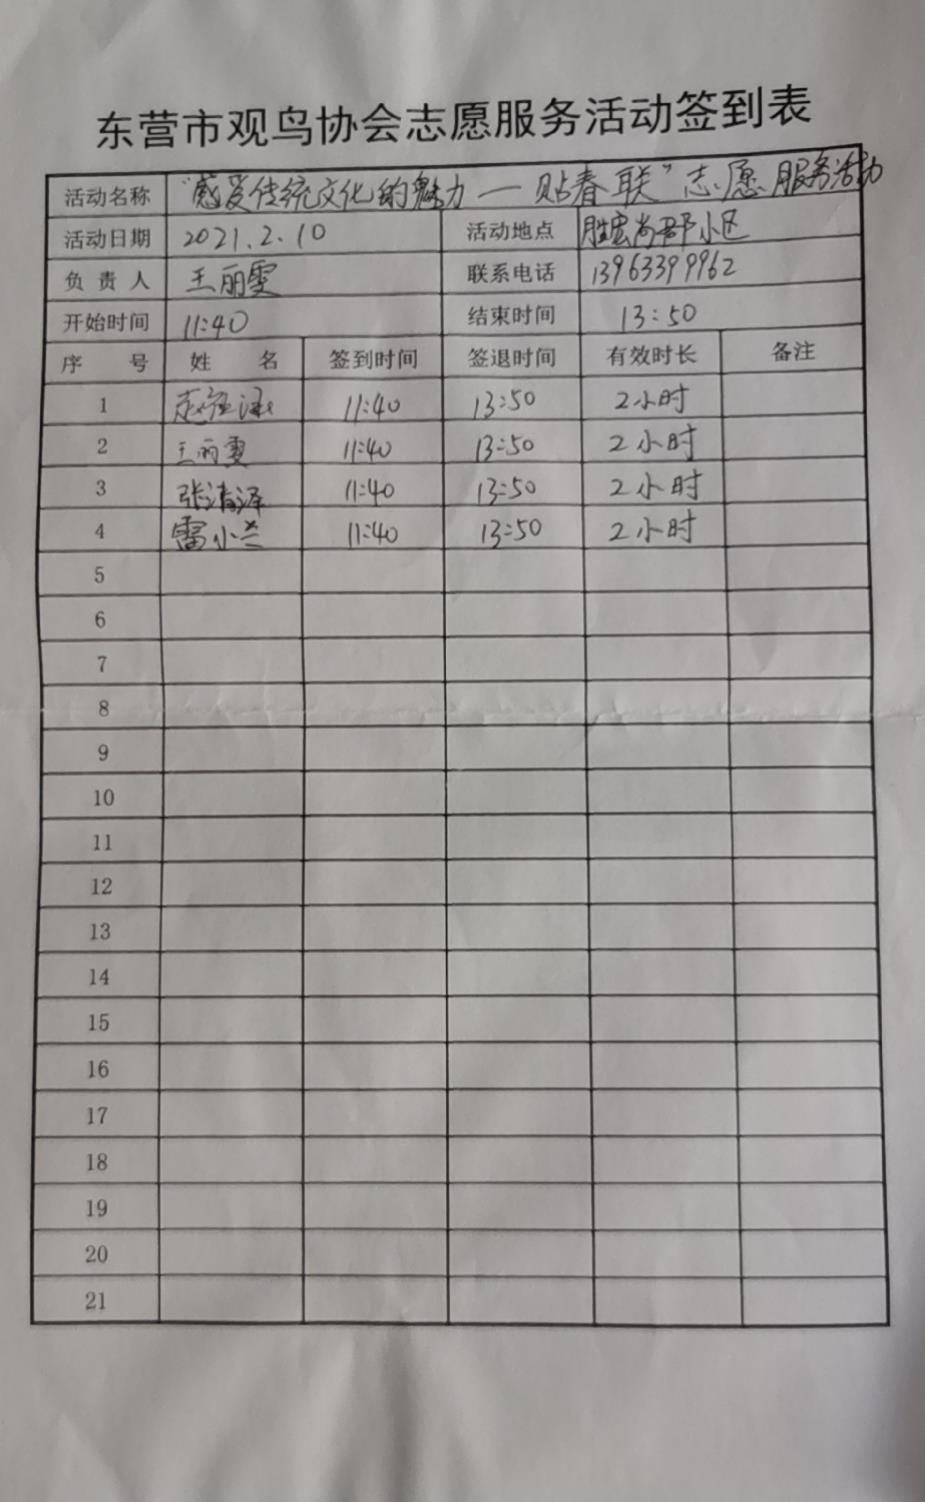 东营市观鸟协会志愿服务活动签到表
活动名称 “感受传统文化的魅力—贴春联”志愿服务活动
活动日期 2021.2.10 活动地点 胜宏尚郡小区
负责人 王丽雯 联系电话 13963399962
开始时间 11:40 结束时间 13:50
序号 姓名 签到时间 签退时间 有效时长 备注
1 11:40 13:50 2小时
2 王丽雯 11:40 13:50 2小时
3 张清泽 11:40 13:50 2小时
4 雷小兰 11:40 13:50 2小时
5
6
7
8
9
10
11
12
13
14
15
16
17
18
19
20
21